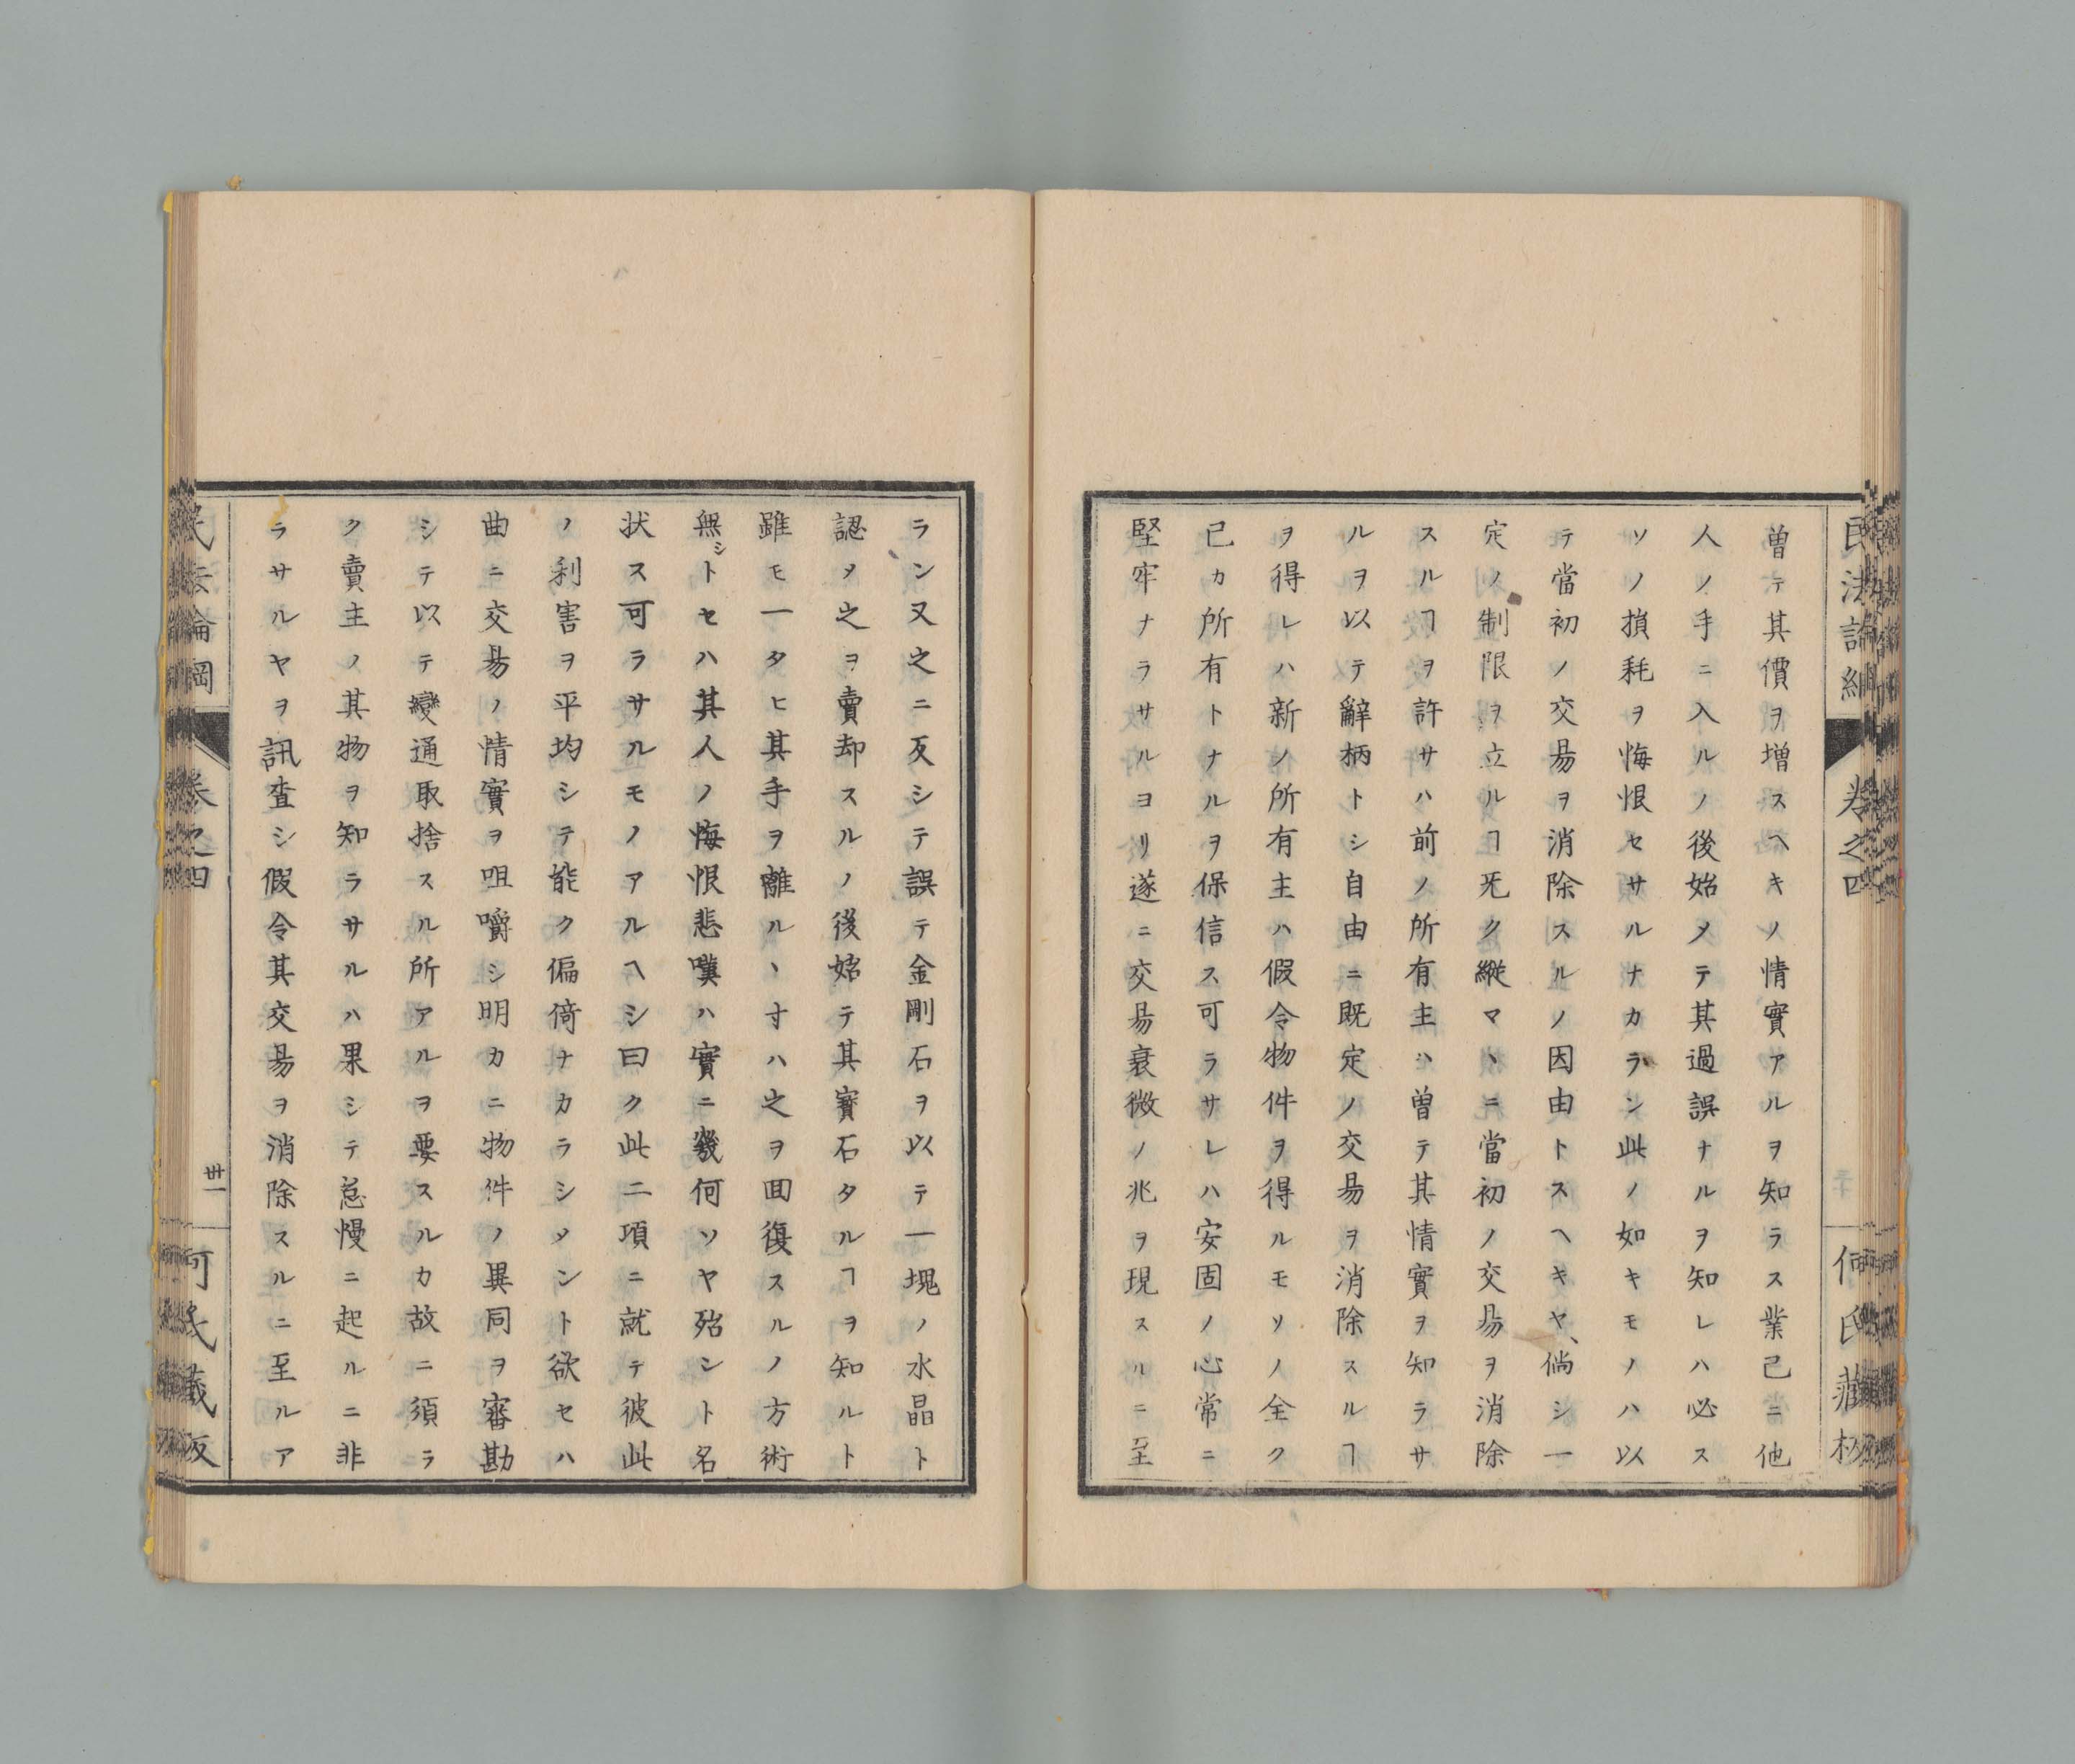 民法論綱 卷之四 何氏藏板
曽テ其價ヲ増スヘキノ情實アルヲ知ラス業已ニ他
人ノ手ニ入ルノ後始メテ其過誤ナルヲ知レハ必ス
ソノ損耗ヲ悔恨セサルナカラン此ノ如キモノハ以
テ當初ノ交易ヲ消除スルノ因由トスヘキヤ、倘シ一
定ノ制限ヲ立ルヿ旡ク縱マヽニ當初ノ交易ヲ消除
スルヿヲ許サハ前ノ所有主ハ曽テ其情實ヲ知ラサ
ルヲ以テ辭柄トシ自由ニ既定ノ交易ヲ消除スルヿ
ヲ得レハ新ノ所有主ハ假令物件ヲ得ルモソノ全ク
己カ所有トナルヲ保信ス可ラサレハ安固ノ心常ニ
堅牢ナラサルヨリ遂ニ交易衰微ノ兆ヲ現スルニ至
ラン又之ニ反シテ誤テ金剛石ヲ以テ一塊ノ水晶ト
認メ之ヲ賣却スルノ後始テ其寳石タルヿヲ知ルト
雖モ一タヒ其手ヲ離ルヽ寸ハ之ヲ囬復スルノ方術
無シトセハ其人ノ悔恨悲嘆ハ實ニ幾何ソヤ殆ント名
状ス可ラサルモノアルヘシ曰ク此二項ニ就テ彼此
ノ利害ヲ平均シテ能ク偏倚ナカラシメント欲セハ
曲ニ交易ノ情實ヲ咀嚼シ明カニ物件ノ異同ヲ審勘
シテ以テ變通取捨スル所アルヲ要スルカ故ニ須ラ
ク賣主ノ其物ヲ知ラサルハ果シテ怠慢ニ起ルニ非
ラサルヤヲ訊査シ假令其交易ヲ消除スルニ至ルア
民法論綱 卷之四 卅一 何氏藏板